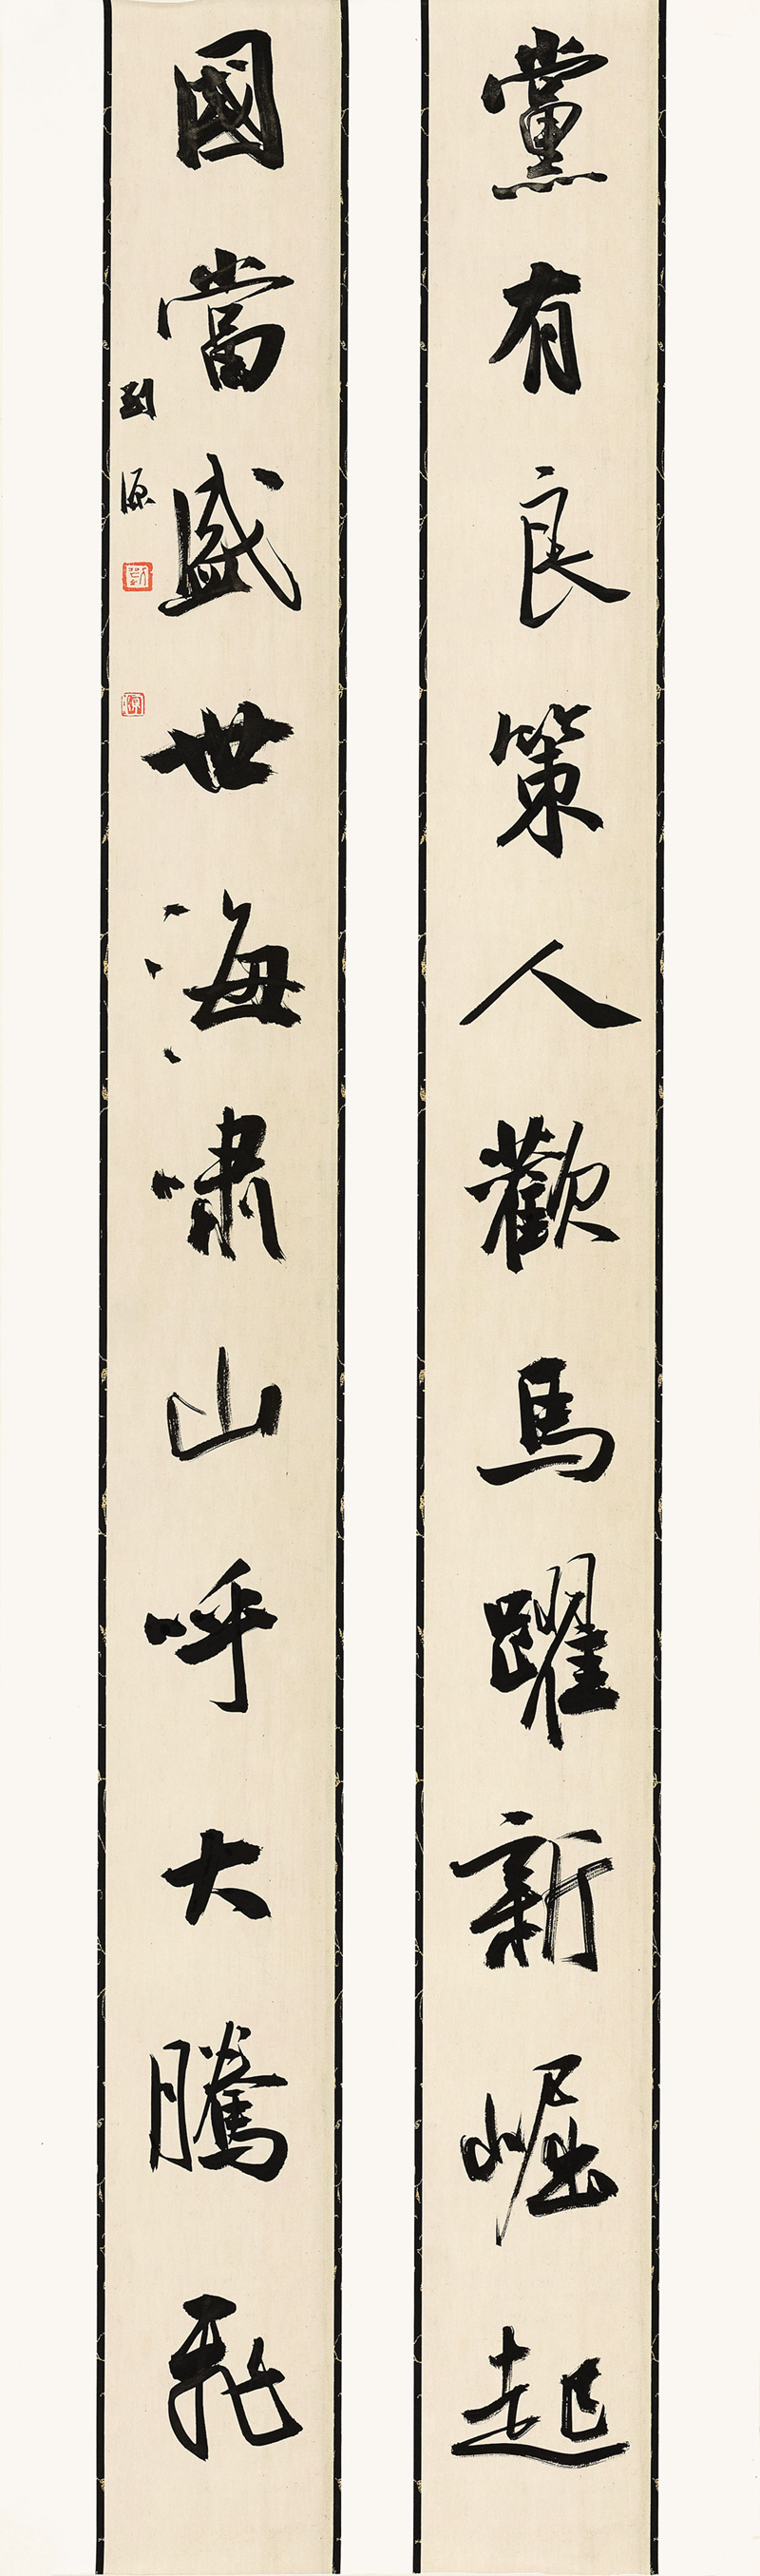 黨有良策人歡馬躍新崛起
國當盛世海嘯山呼大騰飛
劉源